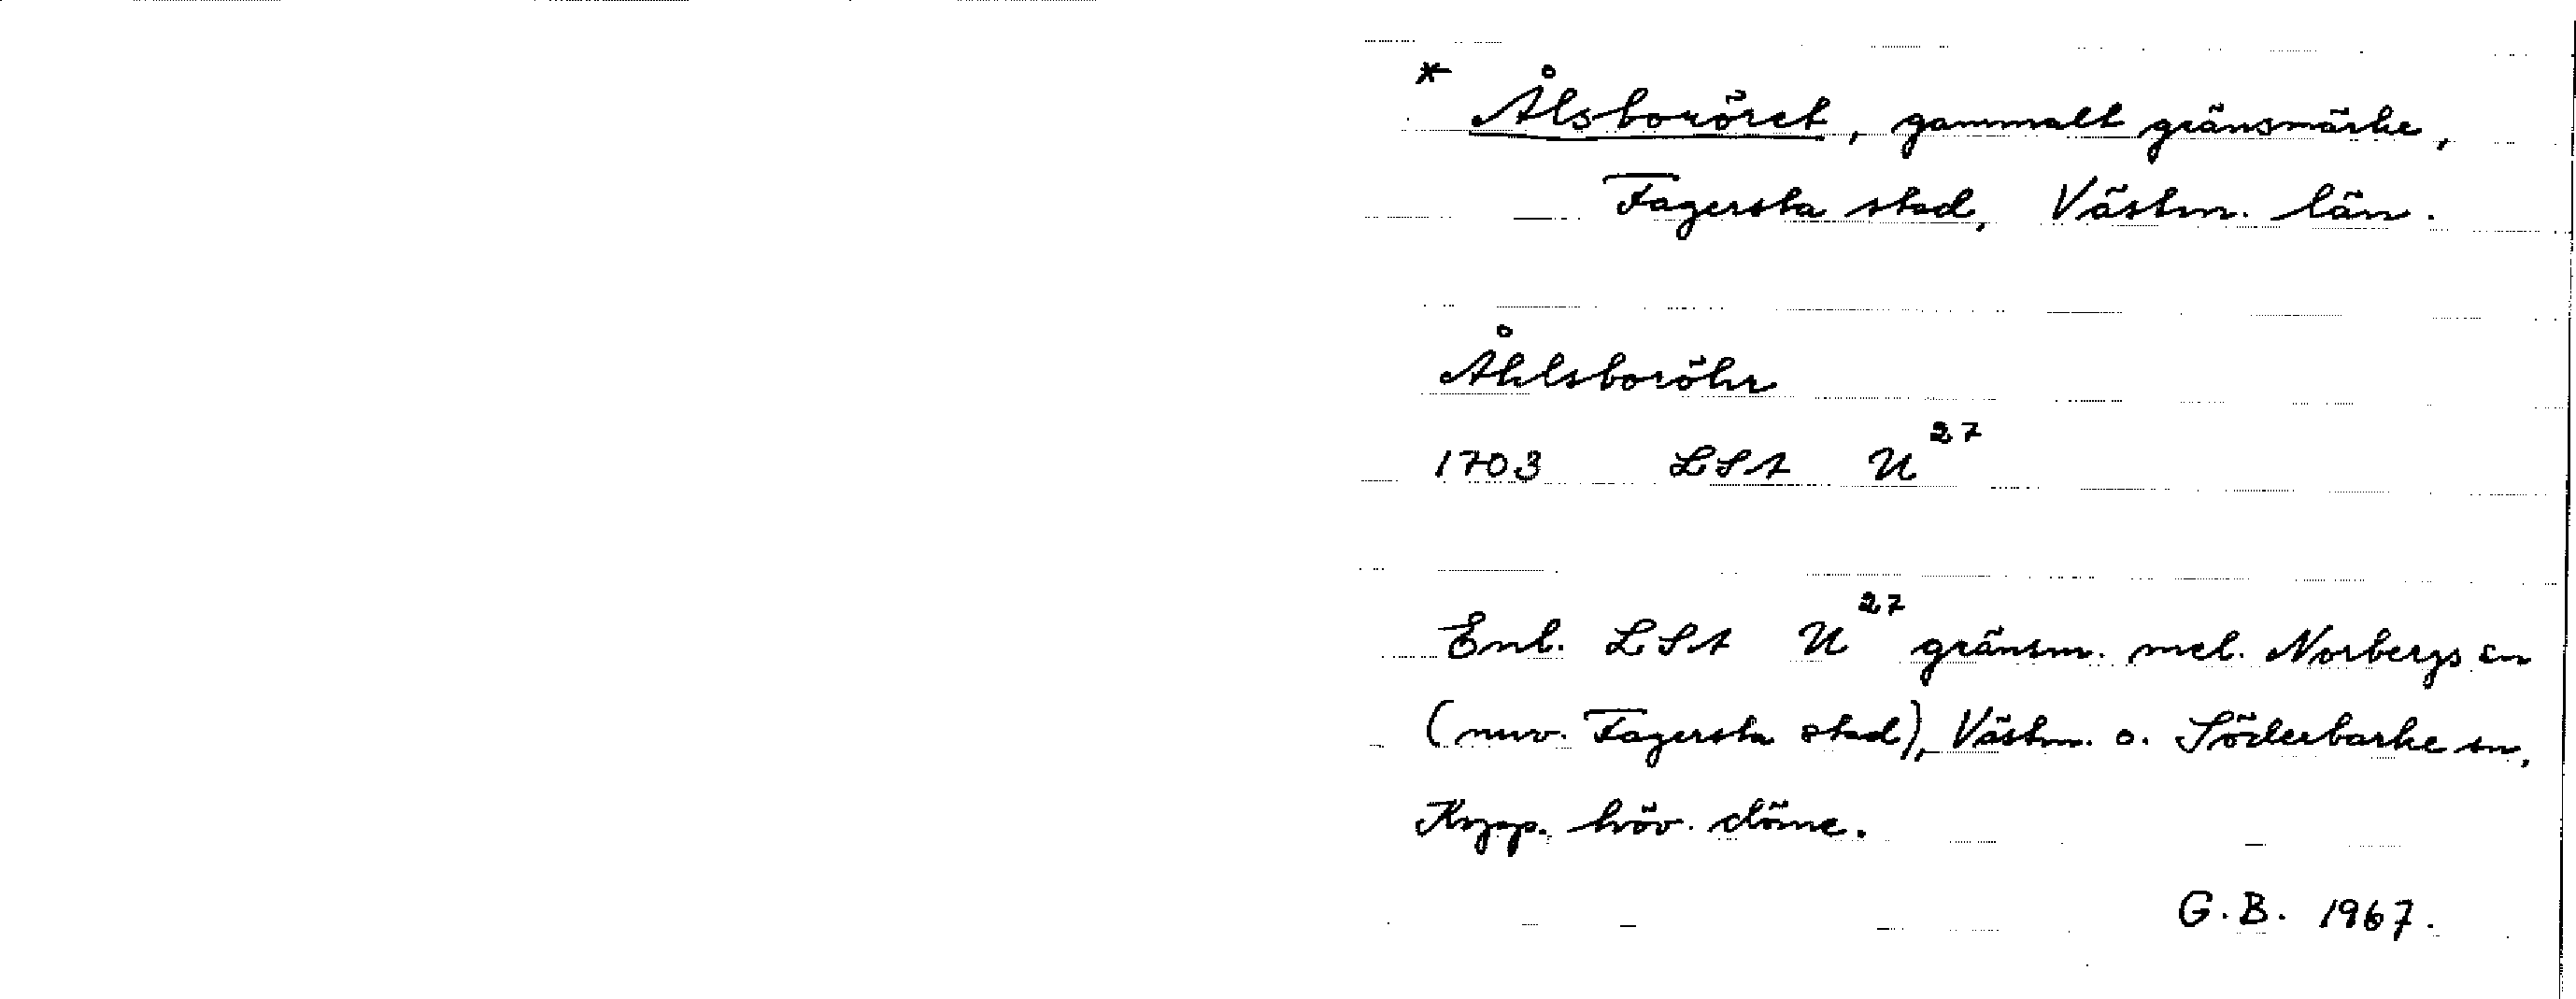 * Ålsboröret, gammalt gränsmärke,
Fagersta stad, Västm. län.
Åhlsboröhr
1703 LSA U27
Enl. LSA U27 gränsm. mel. Norbergs sn
(nuv. Fagersta stad), Västm. o. Söderbarke sn,
Kopp. höv. döme.
G.B. 1967.